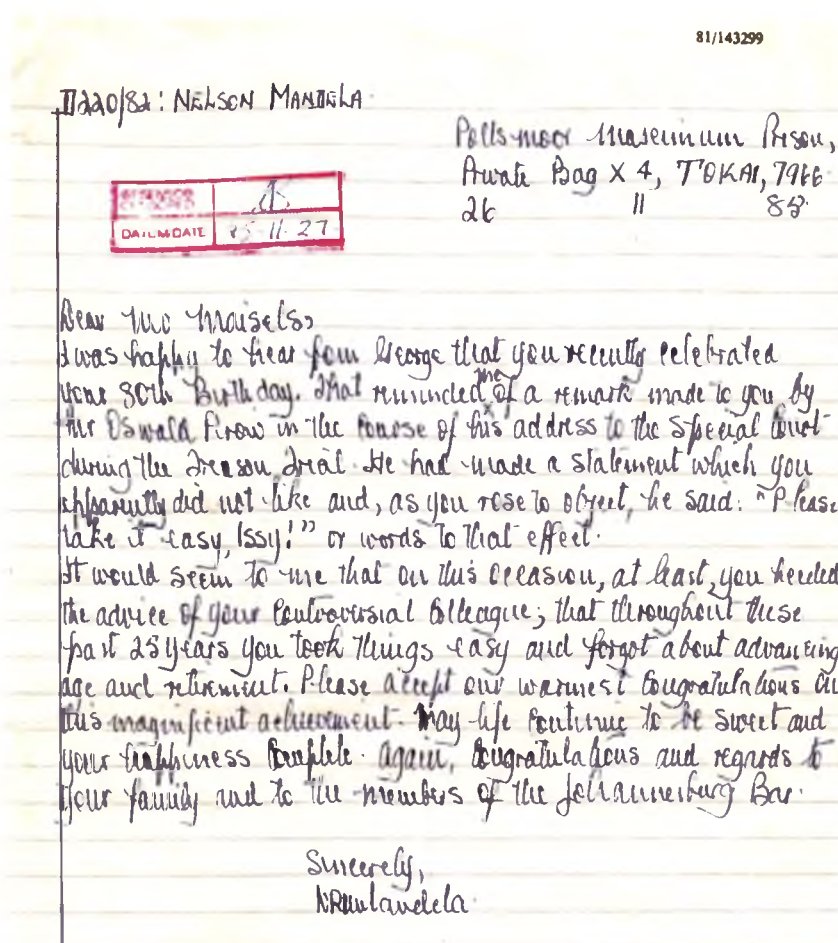 81/143299
D220/82: NELSON MANDELA
Pollsmoor Maximum Prison,
Private Bag X 4, TOKAI, 7966
26 11 85.
DATUM/DATE 85-11-27
Dear Mr Maisels,
I was happy to hear from George that you recently celebrated
your 80th Birthday. That reminded me of a remark made to you by
Mr Oswald Pirow in the course of his address to the Special Court
during the Treason Trial. He had made a statement which you
apparently did not like and, as you rose to object, he said: "Please
take it easy, Issy!" or words to that effect.
It would seem to me that on this occasion, at least, you heeded
the advice of your controversial colleague; that throughout these
past 25 years you took things easy and forgot about advancing
age and retirement. Please accept our warmest congratulations on
this magnificent achievement. May life continue to be sweet and
your happiness complete. Again, congratulations and regards to
your family and to the members of the Johannesburg Bar.
Sincerely,
NRMandela